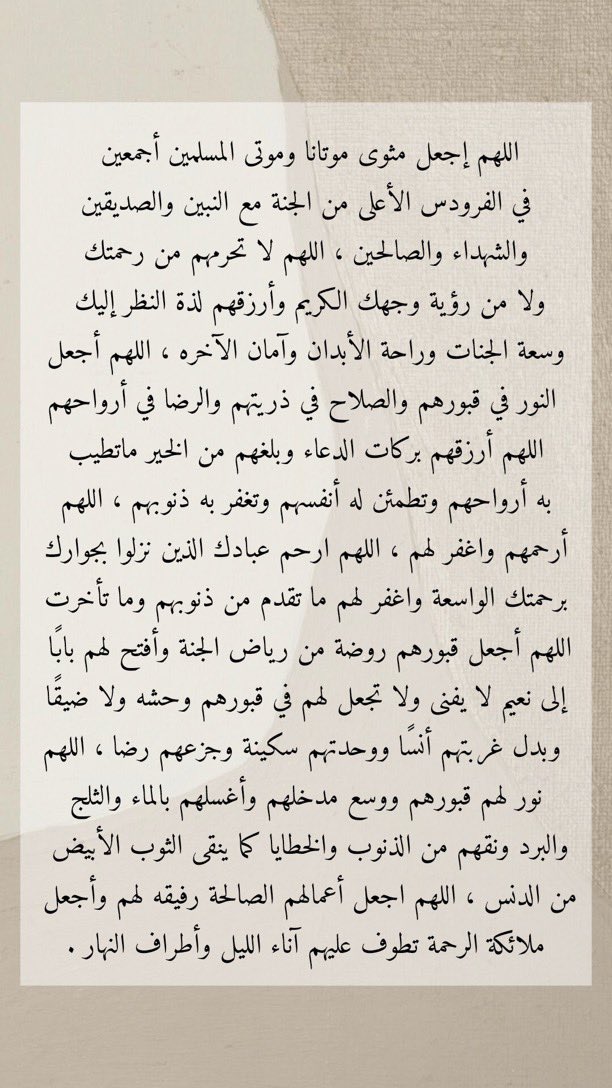 اللهم إجعل مثوى موتانا وموتى المسلمين أجمعين
في الفرودس الأعلى من الجنة مع النبين والصديقين
والشهداء والصالحين ، اللهم لا تحرمهم من رحمتك
ولا من رؤية وجهك الكريم وأرزقهم لذة النظر إليك
وسعة الجنات وراحة الأبدان وآمان الآخره ، اللهم أجعل
النور في قبورهم والصلاح في ذريتهم والرضا في أرواحهم
اللهم أرزقهم بركات الدعاء وبلغهم من الخير ماتطيب
به أرواحهم وتطمئن له أنفسهم وتغفر به ذنوبهم ، اللهم
أرحمهم واغفر لهم ، اللهم ارحم عبادك الذين نزلوا بجوارك
برحمتك الواسعة واغفر لهم ما تقدم من ذنوبهم وما تأخرت
اللهم أجعل قبورهم روضة من رياض الجنة وأفتح لهم بابًا
إلى نعيم لا يفنى ولا تجعل لهم في قبورهم وحشه ولا ضيقًا
وبدل غربتهم أنسًا ووحدتهم سكينة وجزعهم رضا ، اللهم
نور لهم قبورهم ووسع مدخلهم وأغسلهم بالماء والثلج
والبرد ونقهم من الذنوب والخطايا كما ينقى الثوب الأبيض
من الدنس ، اللهم اجعل أعمالهم الصالحة رفيقه لهم وأجعل
ملائكة الرحمة تطوف عليهم آناء الليل وأطراف النهار .